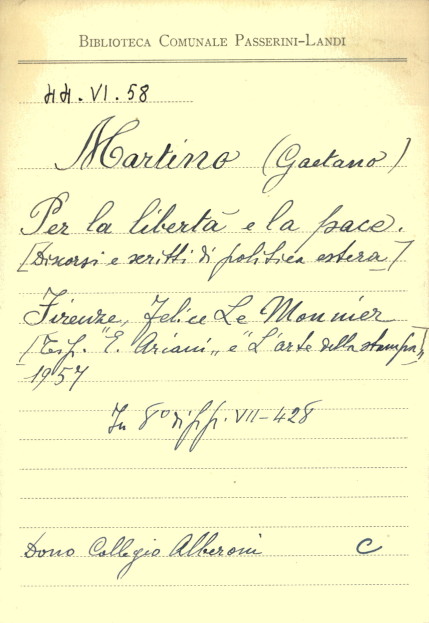 BIBLIOTECA COMUNALE PASSERINI-LANDI
HH. VI. 58
Martino (Gaetano)
Per la libertà e la pace.
[Discorsi e scritti di politica estera]
Firenze, Felice Le Monnier
[Tip. "E. Ariani" e "L'arte della stampa"]
1957
In 8° di pp. VII-428
Dono Collegio Alberoni C